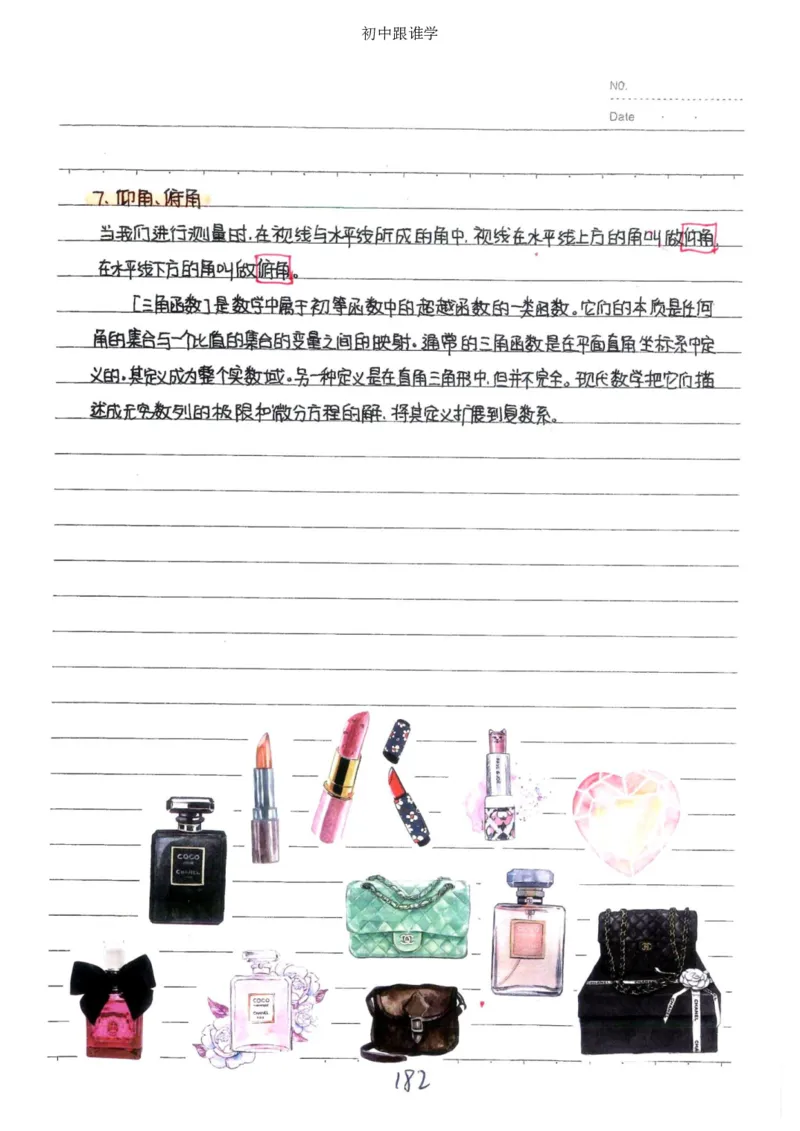 初中跟谁学
NO.
Date
7、仰角、俯角
当我们进行测量时，在视线与水平线所成的角中，视线在水平线上方的角叫做仰角，
在水平线下方的角叫做俯角。
【三角函数】是数学中属于初等函数中的超越函数的一类函数。它们的本质是任何
角的集合与一个比值的集合的变量之间的映射。通常的三角函数是在平面直角坐标系中定
义的。其定义成为整个实数域。另一种定义是在直角三角形中，但并不完全。现代数学把它们描
述成无穷数列的极限和微分方程的解，将其定义扩展到复数系。
COCO
CHANEL
COCO
CHANEL
COCO
CHANEL
182